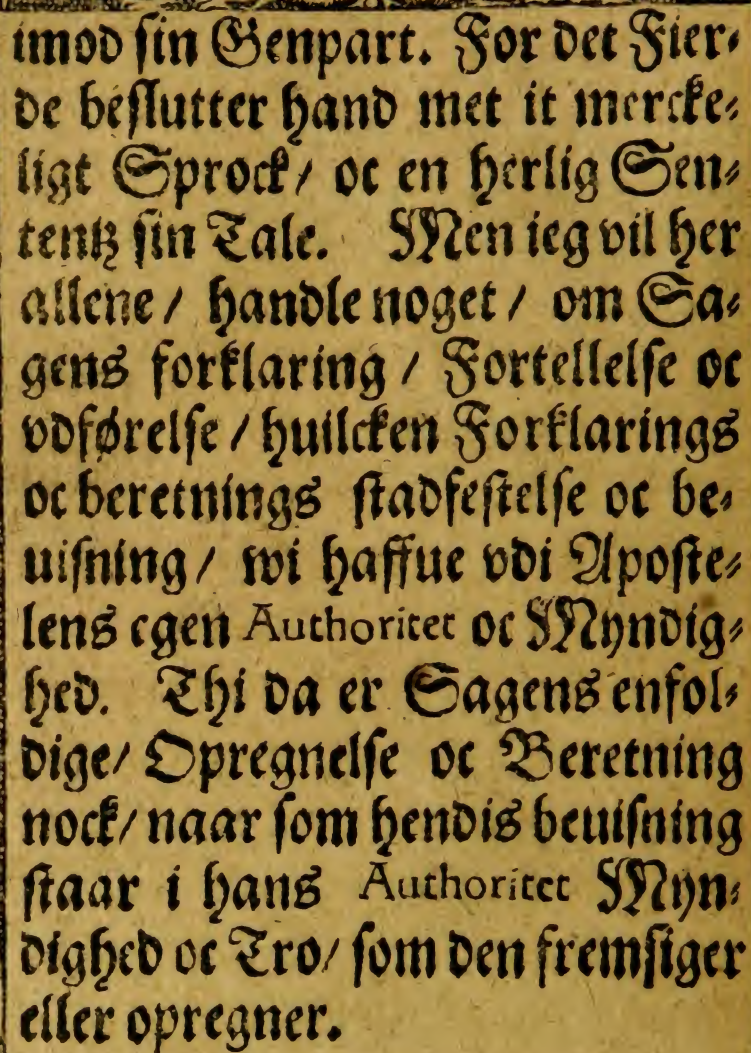 imod sin Genpart. For det Fier⸗
de beslutter hand met it mercke⸗
ligt Sprock / oc en herlig Sen⸗
tentz sin Tale. Men ieg vil her
allene / handle noget / om Sa⸗
gens forklaring / Fortellelse oc
vdførelse / huilcken Forklarings
oc beretnings stadfestelse oc be⸗
uisning / wi haffue vdi Aposte⸗
lens egen Authoritet oc Myndig⸗
hed. Thi da er Sagens enfol⸗
dige / Opregnelse oc Beretning
nock / naar som hendis beuisning
staar i hans Authoritet Myn⸗
dighed oc Tro / som den fremsiger
eller opregner.